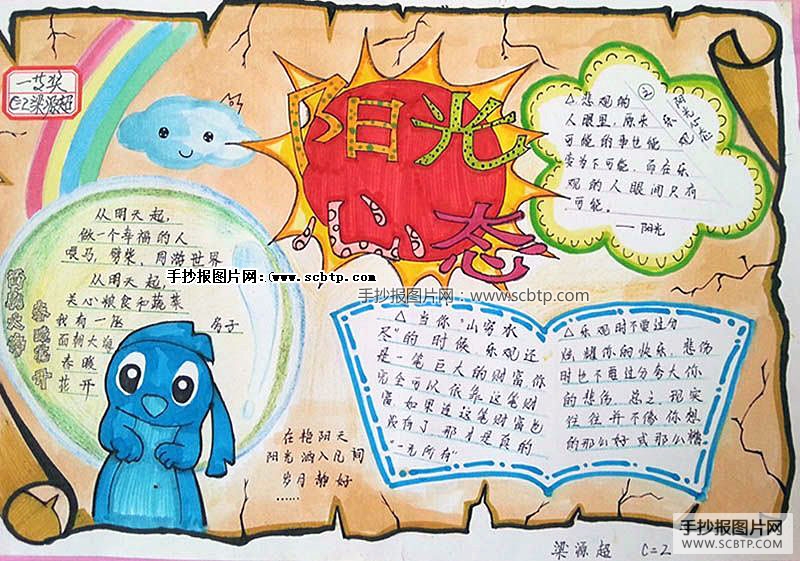 一等奖
C=2梁源超
阳光
心态
从明天起,
做一个幸福的人
喂马,劈柴,周游世界
从明天起,
关心粮食和蔬菜
我有一所 房子
面朝大海
春暖
花开
面朝大海
春暖花开
手抄报图片网:(www.scbtp.com
手抄报图片网:www.scbtp.com
△悲观的
人眼里,原来
可能的事也能
变为不可能,而在乐
观的人眼间只有
可能。
——阳光
△当你"山穷水
尽"的时候,乐观还
是一笔巨大的财富,你
完全可以依靠这笔财
富,如果连这笔财富也
没有了,那才是真的
"一无所有"
△乐观时不要过分
炫耀你的快乐,悲伤
时也不要过分夸大你
的悲伤。总之,现实
往往并不像你想
的那么好或那么糟。
在艳阳天
阳光洒入几间
岁月静好
……
梁源超 C=2
手抄报图片网
WWW.SCBTP.COM